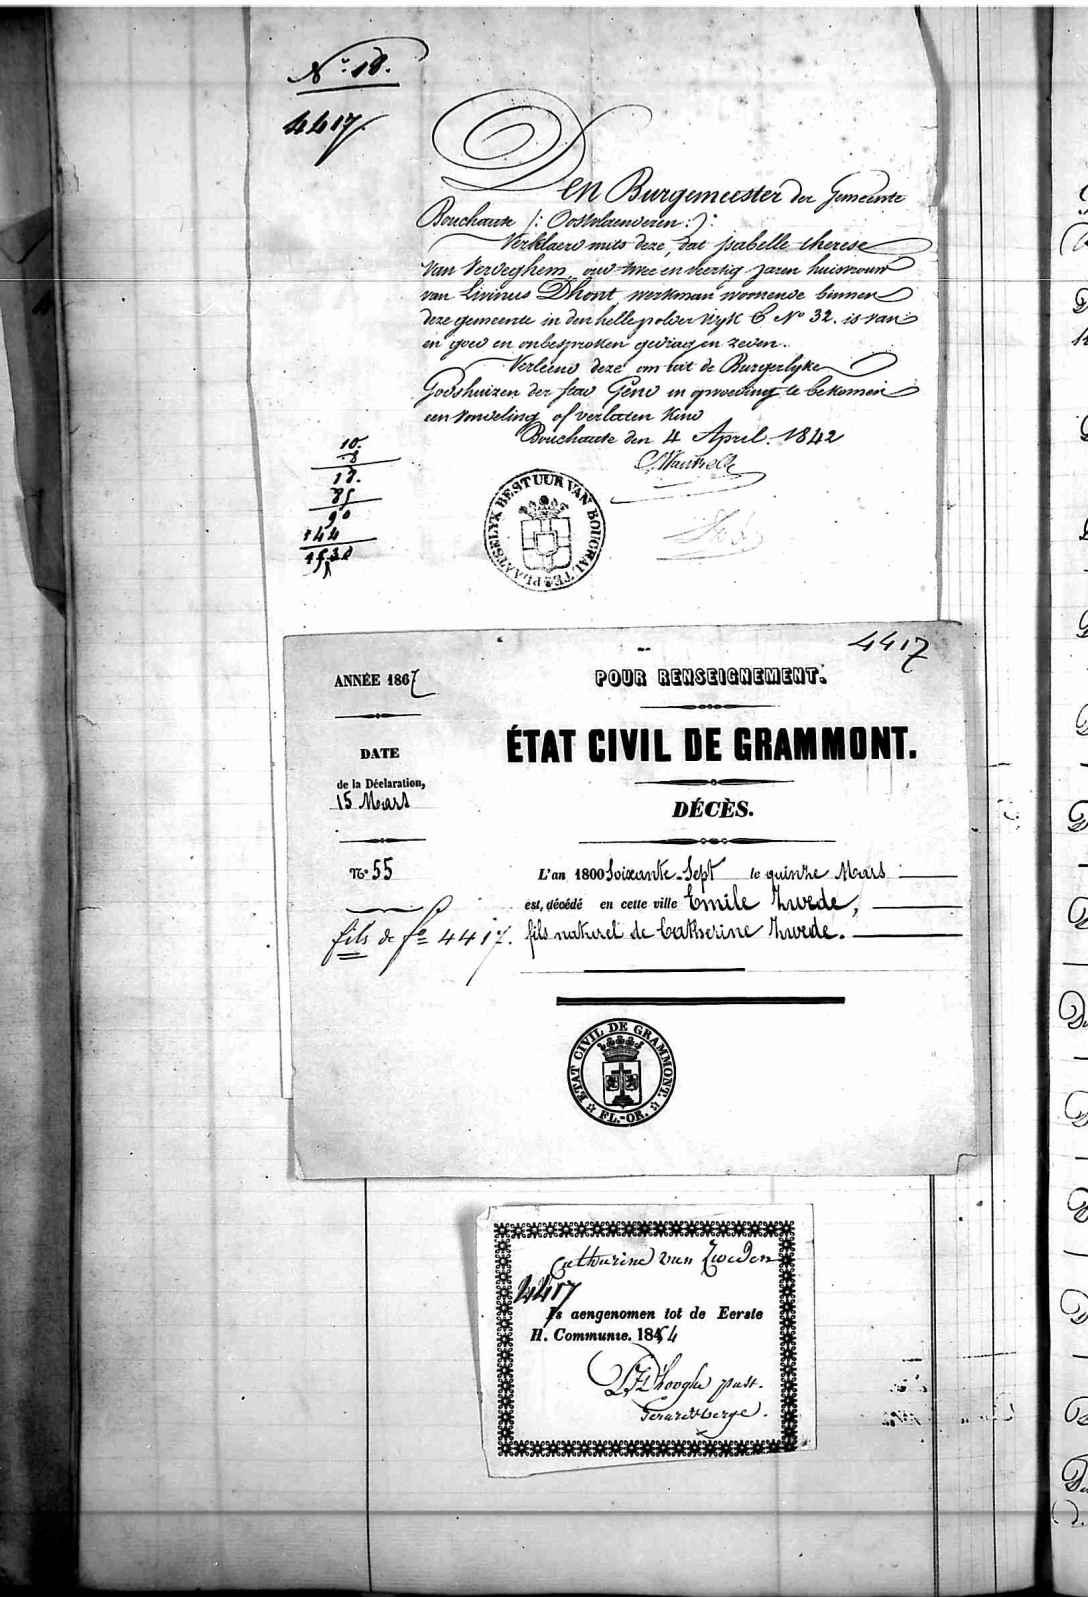 N.° 18.
4417
Den Burgemeester der Gemeente
Bouchaute /: Oostvlaenderen :/:
Verklaerd mits deze, dat Isabelle therese
Van Verdeghem, oud twee en veertig jaren huisvrouw
van Livinus Dhont, werkman woonende binnen
deze gemeente in den hellepolder wyk C N° 32. is van
en goed en onbesproken gedrag en zeden.
Verleend deze om uit de Burgerlyke
Godshuizen der stad Gend in opvoeding te bekomen
een vondeling of verlaten kind
Bouchaute den 4 April. 1842
10.
8
18.
85
90
144
1538
PLAATSELYK BESTUUR VAN BOUCHAUTE
4417
ANNÉE 1867
POUR RENSEIGNEMENT.
ÉTAT CIVIL DE GRAMMONT.
DATE
de la Déclaration,
15 Mars
DÉCÈS.
N° 55
L'an 1800 Soixante-Sept le quinze Mars
est, décédé en cette ville Emile Zwede,
fils naturel de Catherine Zwede.
fils de fe 4417.
ETAT CIVIL DE GRAMMONT. FL.-OR.
Catharina van Zweden
4417
Is aengenomen tot de Eerste
H. Communie. 1854
D'hooghe past.
Gerardsberge.